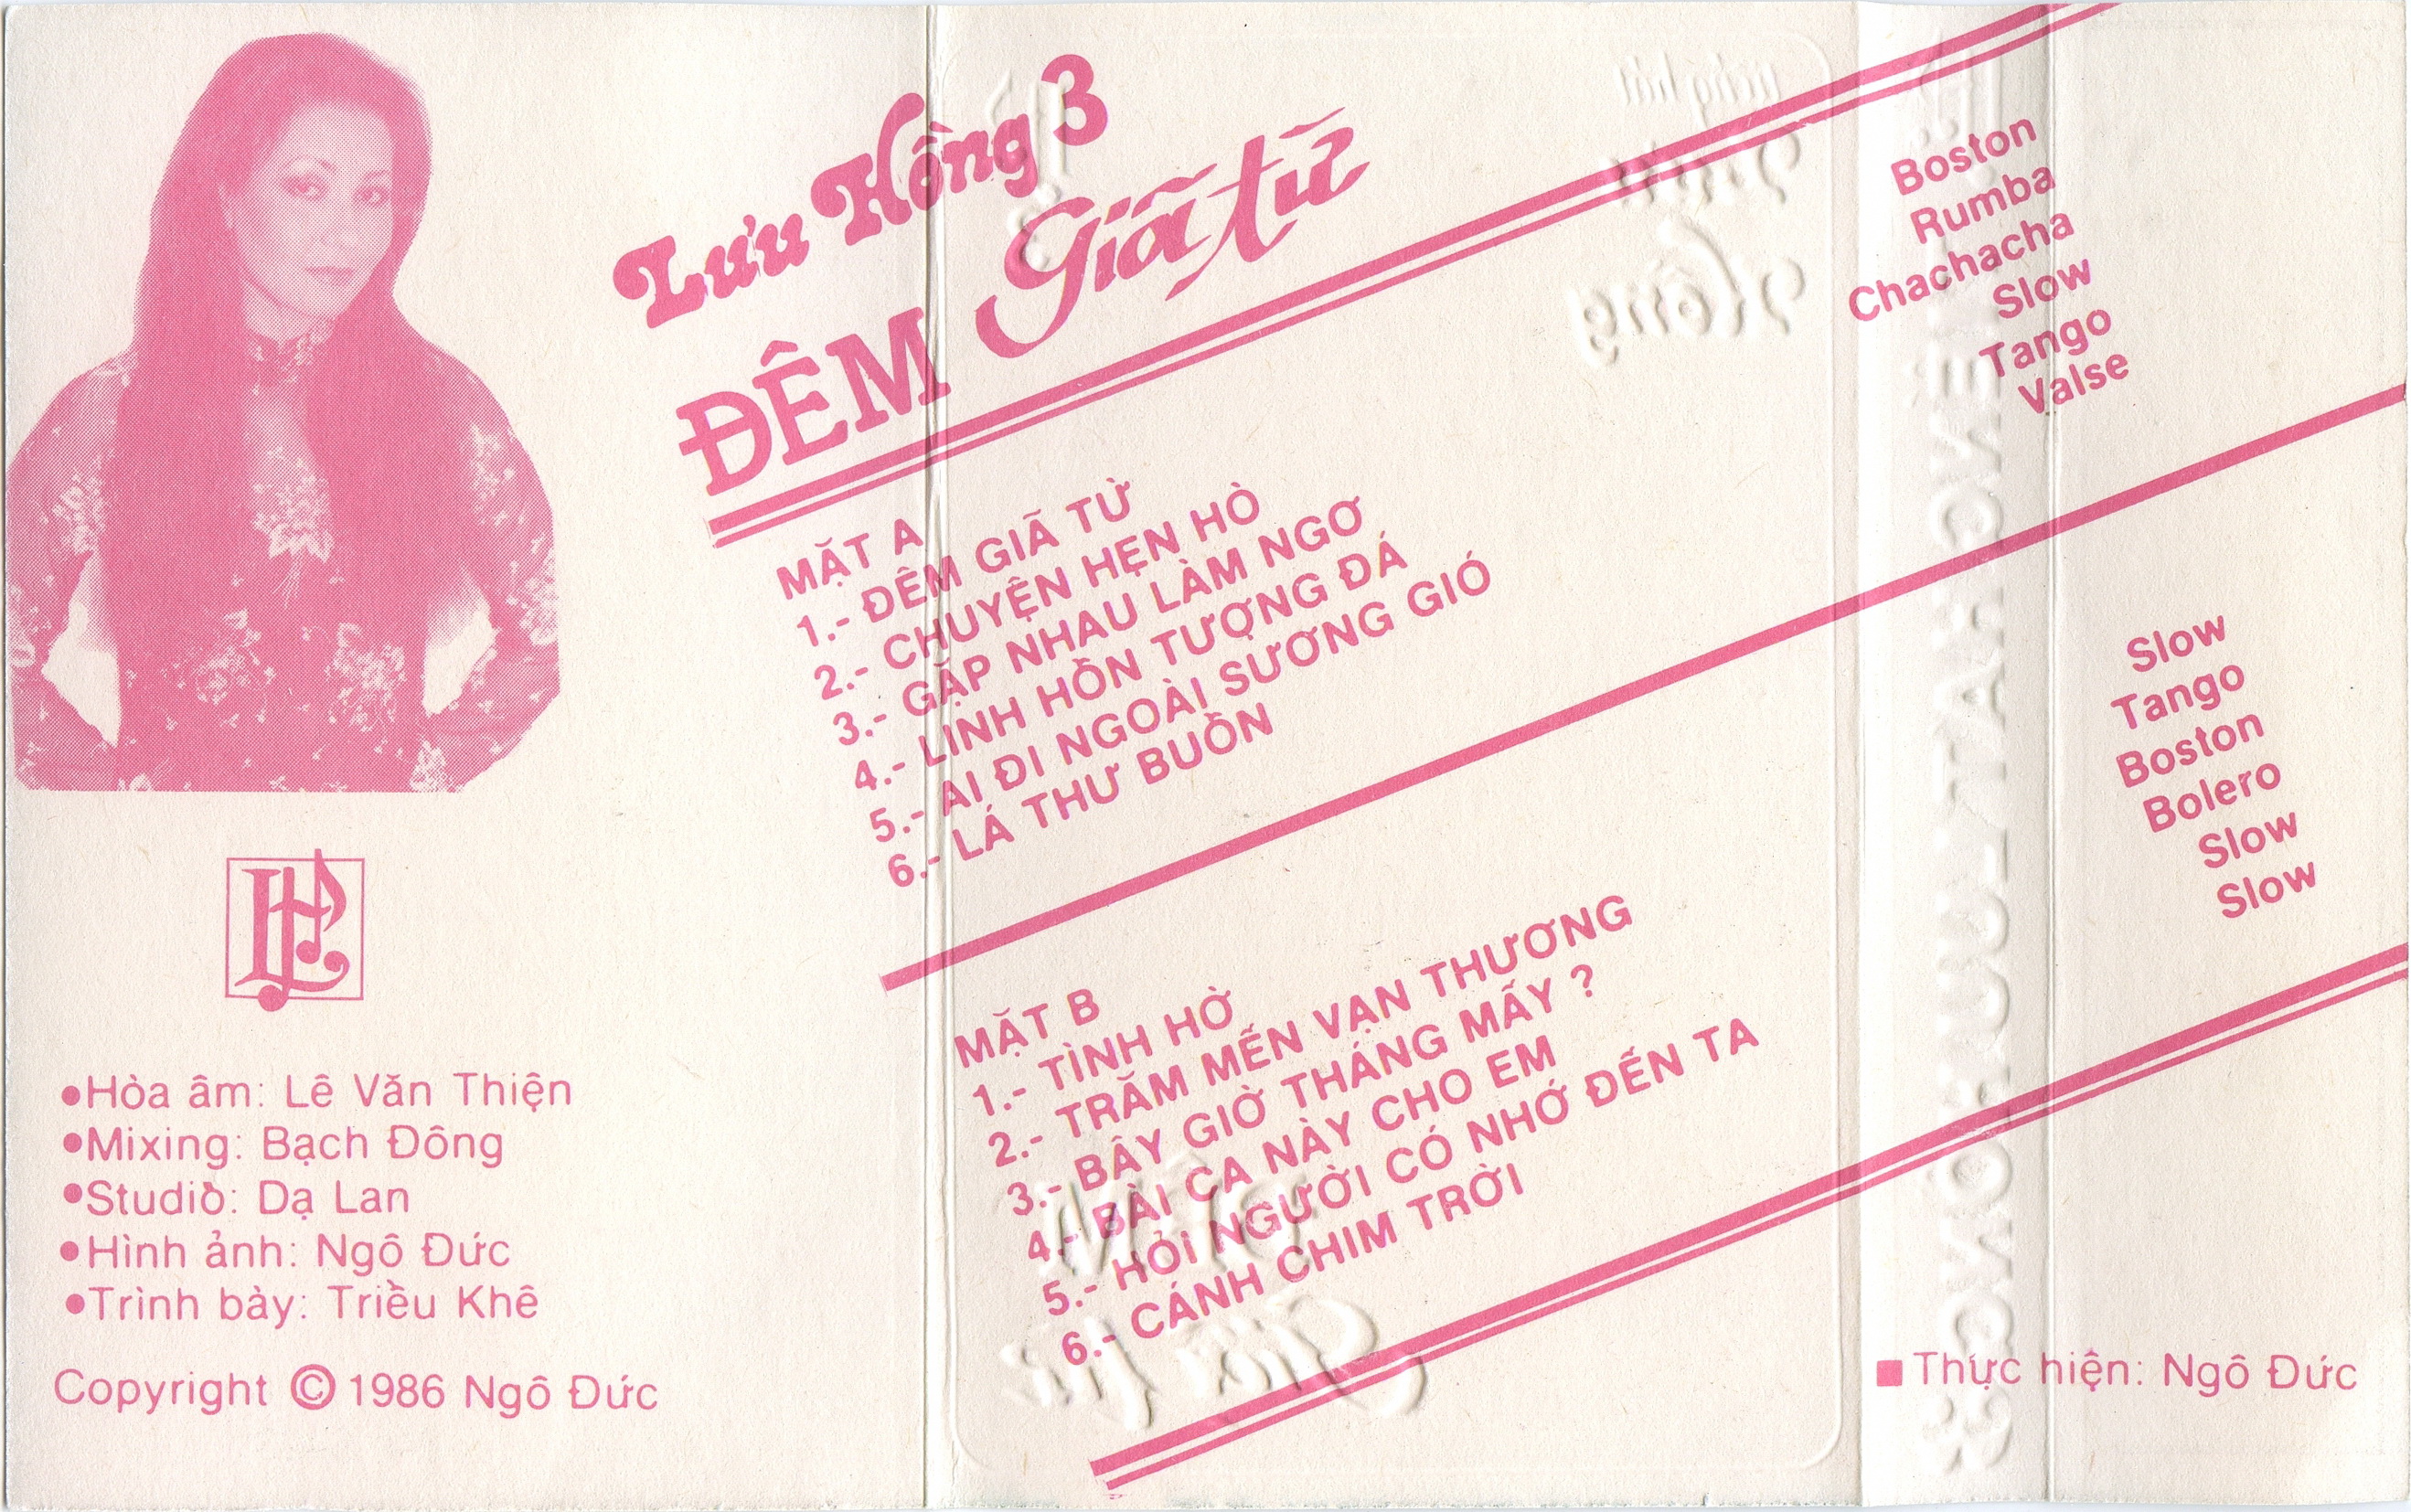 Lưu Hồng 3
ĐÊM Giã từ
MẶT A
1.- ĐÊM GIÃ TỪ Boston
2.- CHUYỆN HẸN HÒ Rumba
3.- GẶP NHAU LÀM NGƠ Chachacha
4.- LINH HỒN TƯỢNG ĐÁ Slow
5.- AI ĐI NGOÀI SƯƠNG GIÓ Tango
6.- LÁ THƯ BUỒN Valse
MẶT B
1.- TÌNH HỜ Slow
2.- TRĂM MẾN VẠN THƯƠNG Tango
3.- BÂY GIỜ THÁNG MẤY ? Boston
4.- BÀI CA NÀY CHO EM Bolero
5.- HỎI NGƯỜI CÓ NHỚ ĐẾN TA Slow
6.- CÁNH CHIM TRỜI Slow
•Hòa âm: Lê Văn Thiện
•Mixing: Bạch Đông
•Studiò: Dạ Lan
•Hình ảnh: Ngô Đức
•Trình bày: Triều Khê
Copyright © 1986 Ngô Đức
■ Thực hiện: Ngô Đức